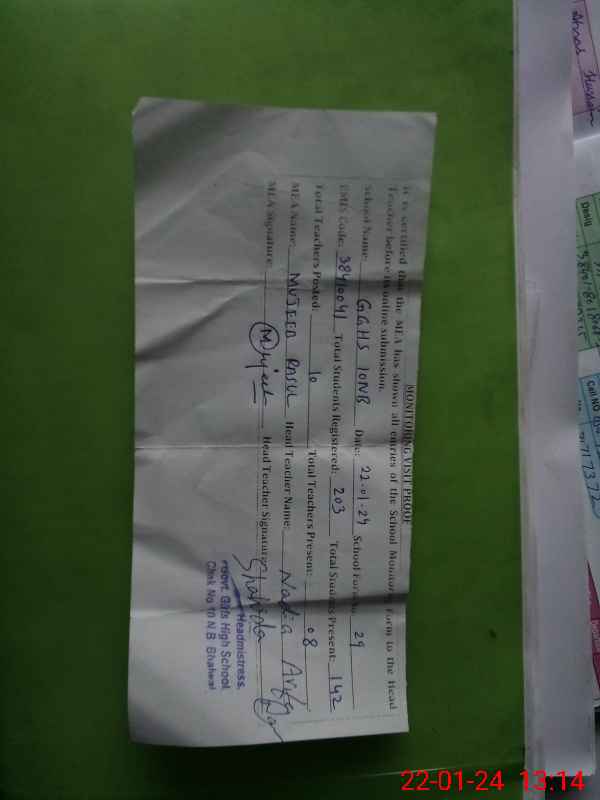 MONITORING VISIT PROOF
It is certified that the MEA has shown all entries of the School Monitoring Form to the Head
Teacher before its online submission.
School Name: GGHS 10NB Date: 22-01-24 School Form No 29
EMIS Code: 38410041 Total Students Registered: 203 Total Students Present: 142
Total Teachers Posted: 10 Total Teachers Present: 08
MEA Name: MUJEEB RASUL Head Teacher Name: Nadia
MEA Signature: Mujeeb Head Teacher Signature Shahida
Headmistress,
Govt. Girls High School
Chak No 10 N B Bhalwal
Hussain
Call NO
22-01-24 13:14